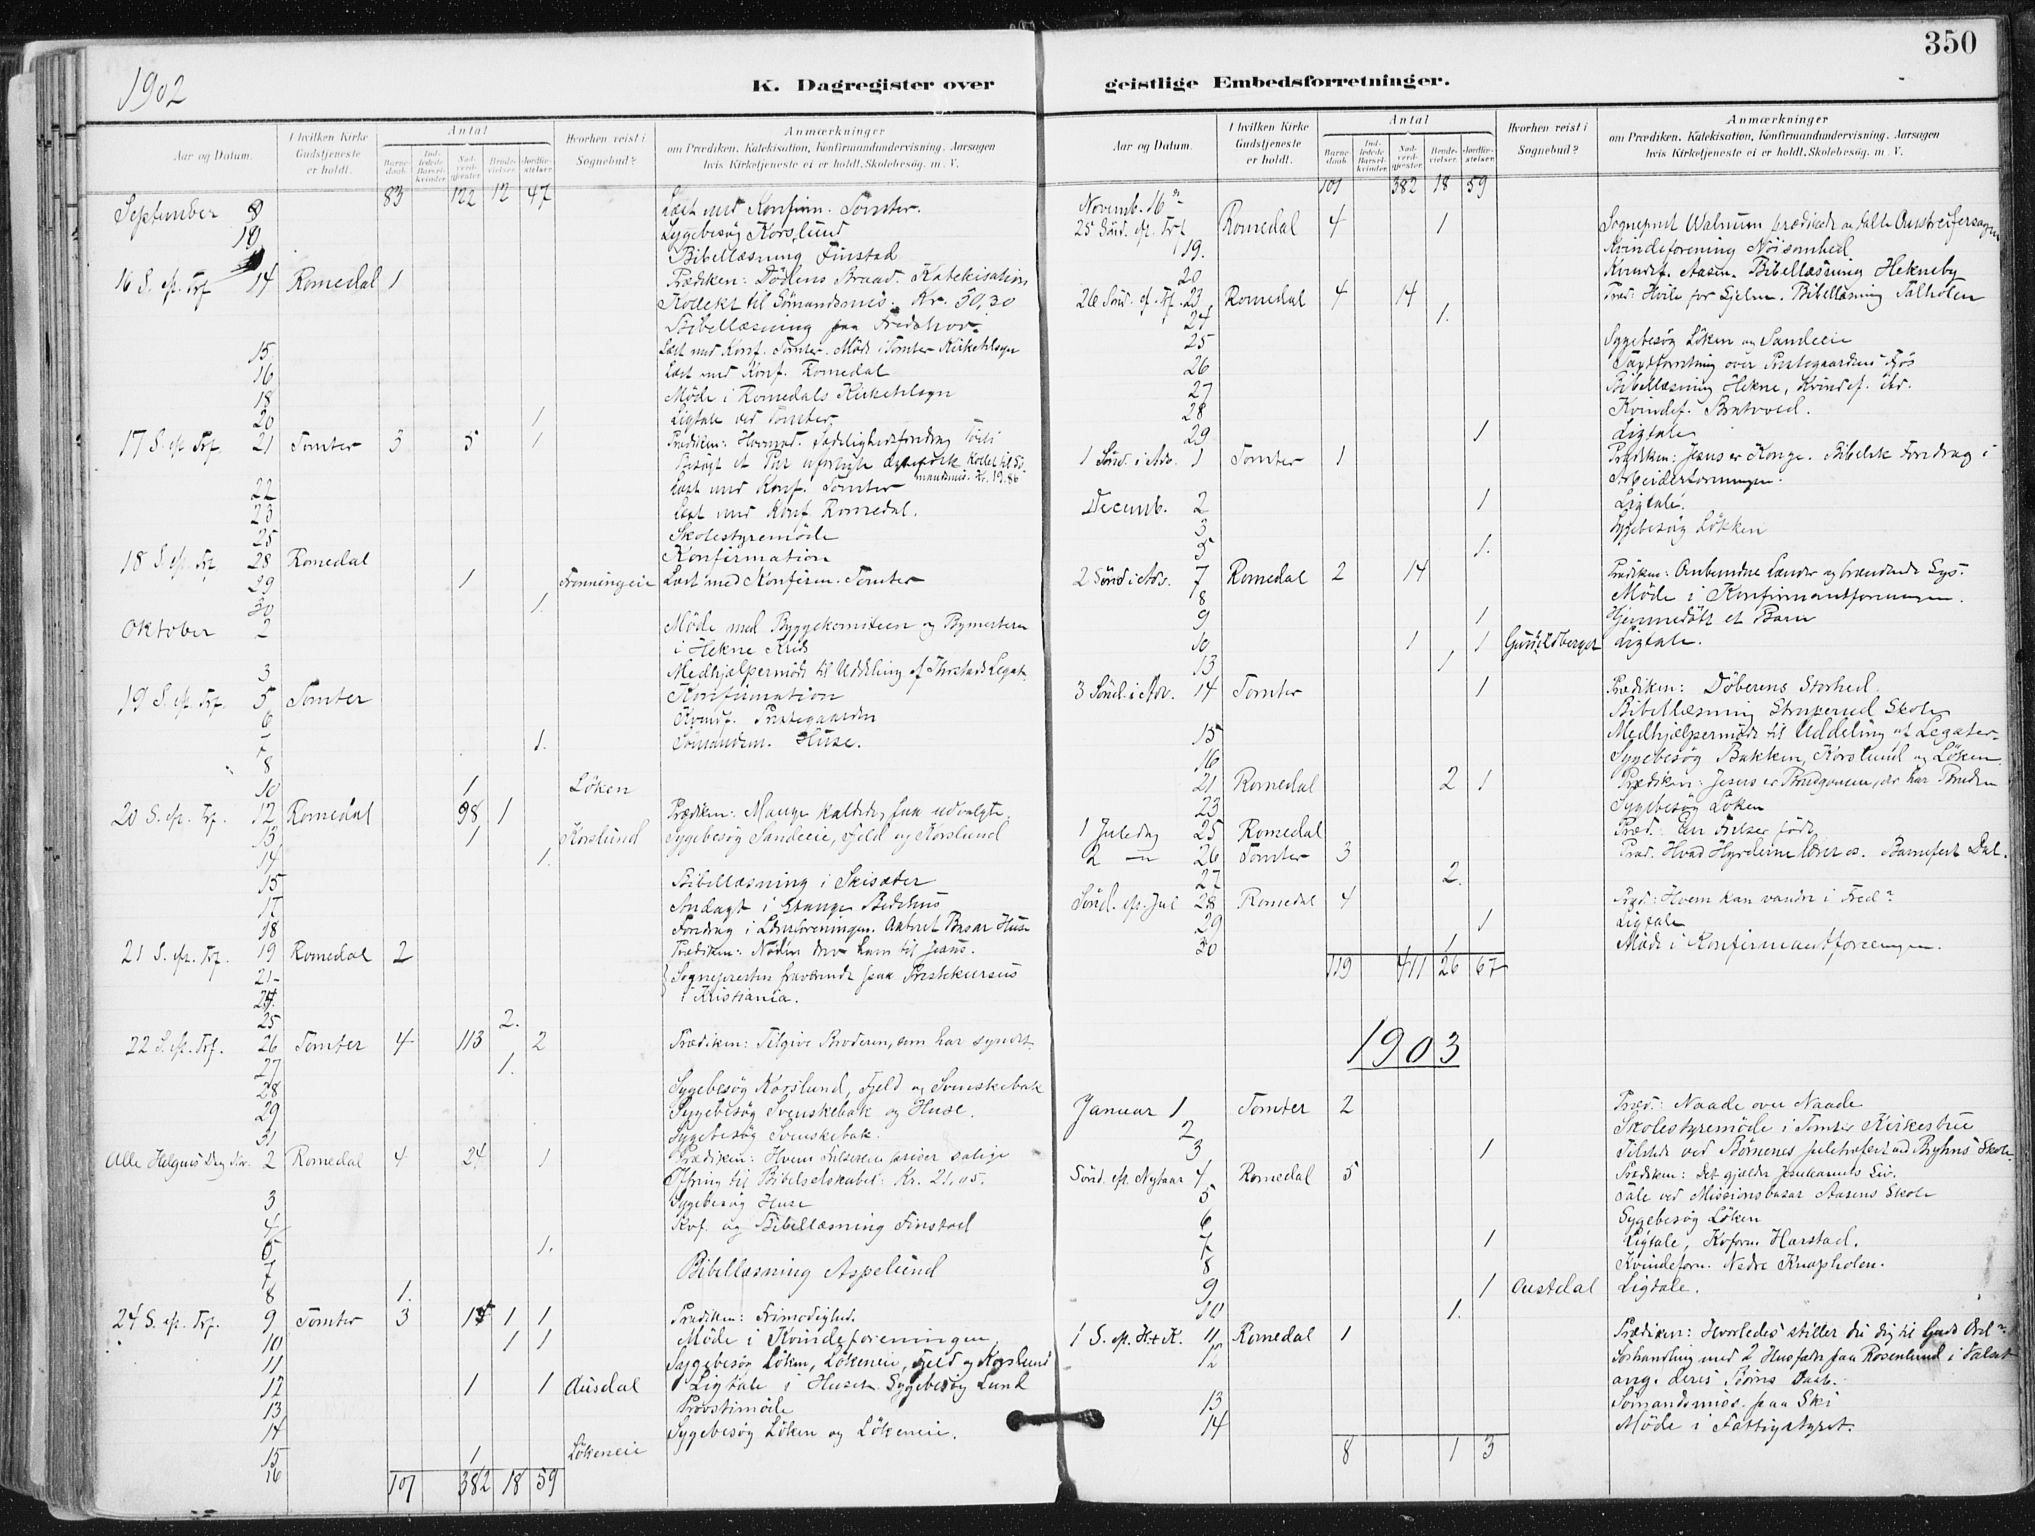 350
1902
K. Dagregister over geistlige Embedsforretninger.
Aar og Datum.
I hvilken Kirke Gudstjeneste er holdt.
Antal
Barnedaab
Indledede Barselkvinder.
Nadverdgjester
Brudevielser.
Jordfæstelser
Hvorhen reist i Sognebud?
Anmærkninger
om Prædiken, Katekisation, Konfirmandundervisning, Aarsagen
hvis Kirketjeneste ei er holdt, Skolebesøg, m. V.
83 122 12 47
September 8 Læst med Konfirm. Tomter.
10 Sygebesøg Korslund
Bibellæsning Finstad
16 S. ep. Trf. 14 Romedal 1 Prædiken: Dødens Braad. Katekisation
Kollekt til Sømandsmis. Kr. 50,30
Bibellæsning paa Fredshov
15 Læst med Konf. Tomter. Møde i Tomter Kirketilsyn
16 Læst med Konf. Romedal
18 Møde i Romedals Kirketilsyn
20 1 Ligtale ved Tomter
17 S. ep. Trf. 21 Tomter 3 5 1 Prædiken:
22 Læst med Konf. Tomter
23 Læst med Konf. Romedal.
25 Skolestyremøde
18 S. ep. Trf. 28 Romedal Konfirmation
29 1 Frønningeie Læst med Konfirm. Tomter
30 1
Oktober 2 Møde med Byggekomiteen og Bymesteren
i Hekne Kreds
3 Medhjælpermøde til Uddeling af Legat.
19 S. ep. Trf. 5 Tomter Konfirmation
6 Kvindf. Prestegaarden
7 1. Sømandsm. Huse.
8
10 1 Løken
20 S. ep. Trf. 12 Romedal 98 1 Prædiken: Mange kaldede, faa udvalgte.
13 1 Korslund Sygebesøg Sandeeie, Fjeld og Korslund
14 1.
15 Bibellæsning i Skisæter
17 Andagt i Stange Bedehus
18 Foredrag i Basar Huse
21 S. ep. Trf. 19 Romedal 2 Prædiken: Nøden drev ham til Jesus.
21- Sognepresten fraværende paa Prestekursus
24. i Kristiania.
25 2.
22 S. ep. Trf. 26 Tomter 4 113 2 Prædiken: Tilgive Broderen, som har syndet.
27 1.
28 Sygebesøg Korslund, Fjeld og Svenskebak
29 Sygebesøg Svenskebak og Huse.
31 Sygebesøg Svenskebak.
Alle Helgens Dag 2 Romedal 4 24 1 Prædiken: Hvem Frelseren priser salige
Offring til Bibelselskabet: Kr. 21,05.
3 Sygebesøg Huse
4 Kvf. og Bibellæsning Finstad
5 1.
7 Bibellæsning Aspelund
8 1.
24 S. ep. Trf. 9 Tomter 3 1 1 Prædiken: Frimodighed.
10 1 1 Møde i Kvindeforeningen
11 Sygebesøg Løken, Løkeneie, Fjeld og Korslund
12 1 1 Ausdal Ligtale i Huset. Sygebesøg Lund
13 Provstimøde
14 Sygebesøg Løken og Løkeneie.
15 1 Løkeneie
16
107 382 18 59
Aar og Datum.
I hvilken Kirke Gudstjeneste er holdt.
Antal
Barnedaab
Indledede Barselkvinder.
Nadverdgjester
Brudevielser.
Jordfæstelser
Hvorhen reist i Sognebud?
Anmærkninger
om Prædiken, Katekisation, Konfirmandundervisning, Aarsagen
hvis Kirketjeneste ei er holdt, Skolebesøg, m. V.
101 382 18 59
Novemb. 16
25 Sønd. ep. Trf. Romedal 4 1 Sogneprest Walnum prædikede og talte
19. Kvindeforening Nøisomhed
20 Kvindef. Aasen. Bibellæsning Hekneby
26 Sønd. ep. Trf. 23 Romedal 4 14 Præd: Hvile for Sjelen. Bibellæsning
24 1.
25 Sygebesøg Løken og Sandeeie
26 over Prestegaardens Fjøs
27 Bibellæsning Hekne, Kvindef.
28 Kvindef.
29 1 Ligtale
1 Sønd. i Adv. 1 Tomter 1 Prædiken: Jesus er Konge. Bibelsk Foredrag i
Arbeiderforeningen.
Decemb. 2 1 Ligtale.
3 Sygebesøg Løkken
5 1.
2 Sønd i Adv. 7 Romedal 2 14 Prædiken: Ombundne Lænder og brændende Lys.
8 Møde i Konfirmantforeningen.
9 1 Hjemmedøbt et Barn
10 1 1 Gunildberget Ligtale.
13 1
3 Sønd. i Adv. 14 Tomter 1 Prædiken: Døberens Storhed.
Bibellæsning Skole
15 Medhjælpermøde til Uddeling af Legater.
16 Sygebesøg Bakken, Korslund og Løken
21 Romedal 2 1 Prædiken: Jesus er Brudgommen, der har Bruden
23 Sygebesøg Løken
1 Juledag 25 Romedal Præd.: En Frelser født
2 — " 26 Tomter 3 Præd. Hvad Hyrderne lærer os. Barnefest Dal.
27 2.
Sønd. ep. Jul 28 Romedal 4 Præd: Hvem kan vandre i Fred?
29 1 Ligtale
30 Møde i Konfirmantforeningen.
119 411 26 67
1903
Januar 1 Tomter 2 Præd.: Naade over Naade
2 Skolestyremøde i Tomter Kirkestue
3 1 Tilstede ved Børnenes juletræfest ved Bryhns Skole.
Sønd. ep. Nytaar 4 Romedal 5 Prædiken: Det gjælder Liv.
5 Tale ved Missionsbasar Aasens Skole
6 Sygebesøg Løken
7 1 Ligtale, Kvforn. Harstad.
8 Kvindeforn. Nedre Knapholen.
9 1 Austdal Ligtale.
10 1.
1 S. ep. H+K. 11 Romedal 1 Prædiken: Hvorledes stiller du dig til Guds Ord?
12 med 2 Husfædre paa Rosenlund i
ang. deres Børns Daab.
13 Sømandsmis. paa Ski
14 Møde i Fattigstyret.
8 1 3